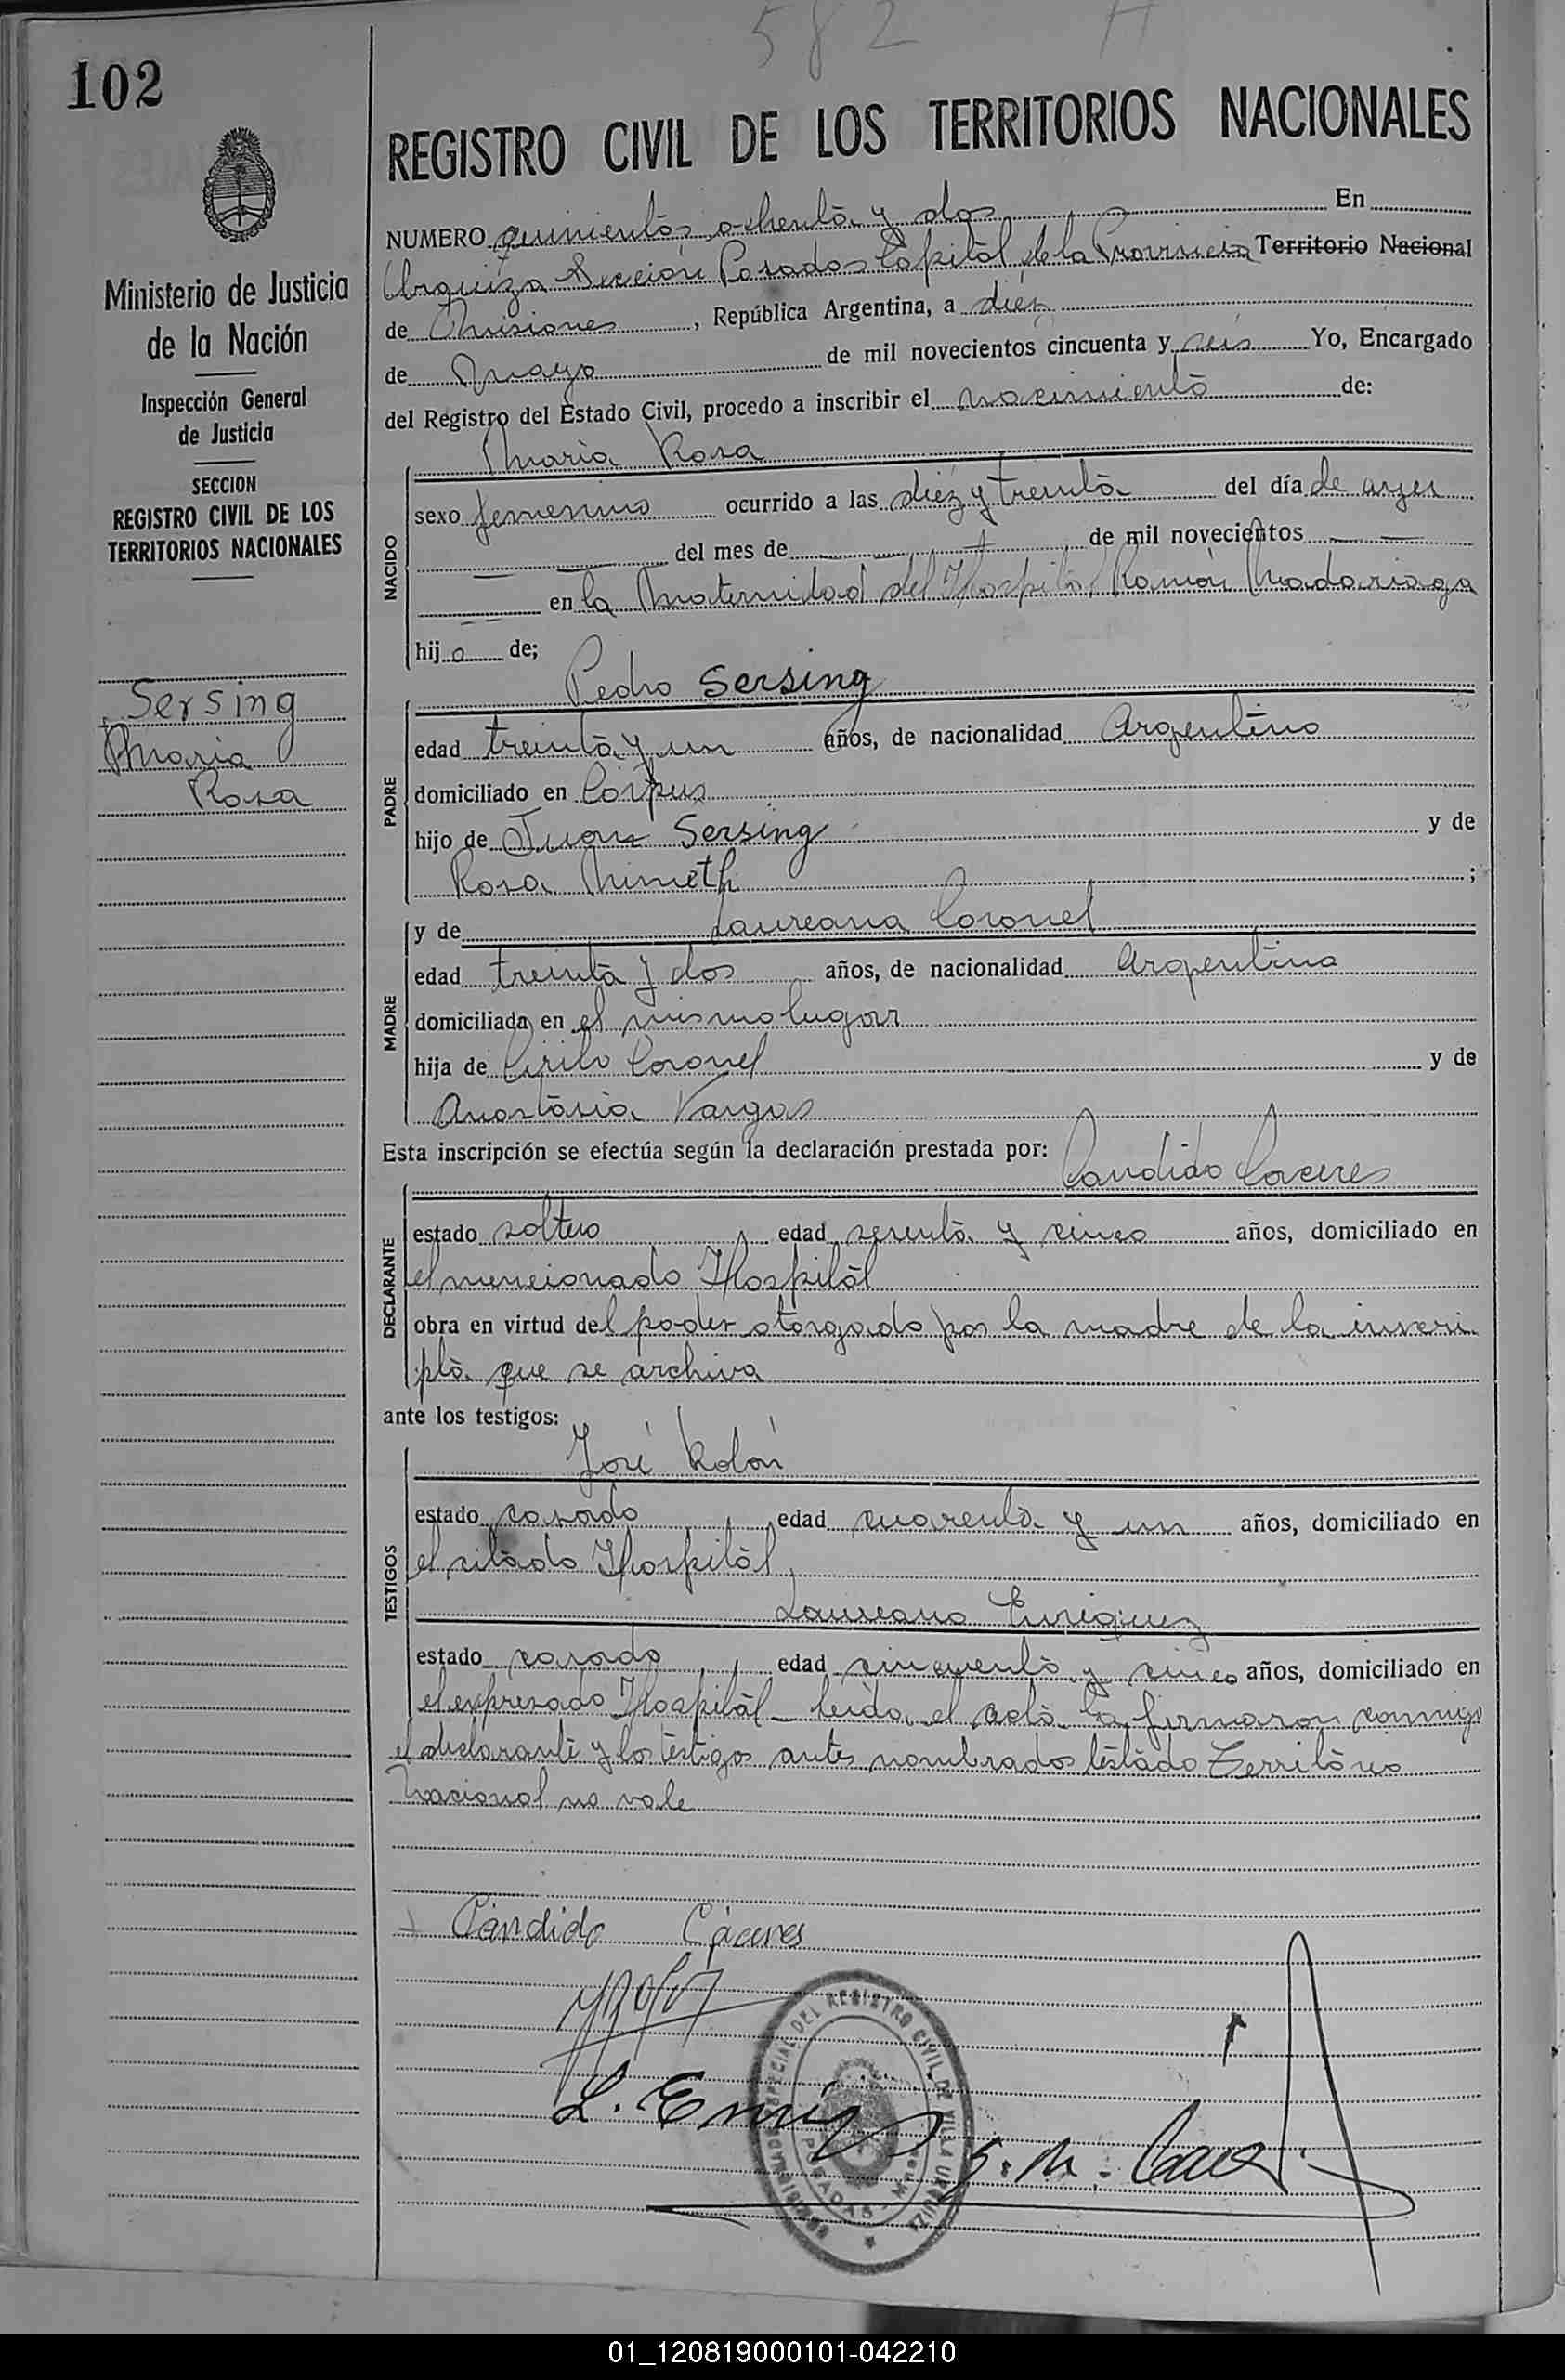 582
102
REGISTRO CIVIL DE LOS TERRITORIOS NACIONALES
Ministerio de Justicia
de la Nación
Inspección General
de Justicia
SECCION
REGISTRO CIVIL DE LOS
TERRITORIOS NACIONALES
Sersing
Maria
Rosa
NUMERO quinientos ochenta y dos En
Urquiza Sección Posadas Capital de la Provincia Territorio Nacional
de Misiones, República Argentina, a diez
de Mayo de mil novecientos cincuenta y seis Yo, Encargado
del Registro del Estado Civil, procedo a inscribir el nacimiento de:
Maria Rosa
NACIDO
sexo femenino ocurrido a las diez y treinta del día de ayer
del mes de de mil novecientos
en la Maternidad del Hospital Ramón Madariaga
hija de;
Pedro Sersing
PADRE
edad treinta y un años, de nacionalidad Argentino
domiciliado en Corpus
hijo de Juan Sersing y de
Rosa Nimeth ;
y de Laureana Coronel
MADRE
edad treinta y dos años, de nacionalidad Argentina
domiciliada en el mismo lugar
hija de Cirilo Coronel y de
Anastasia Vargas
Esta inscripción se efectúa según la declaración prestada por: Candido Caceres
DECLARANTE
estado soltero edad sesenta y cinco años, domiciliado en
el mencionado Hospital
obra en virtud del poder otorgado por la madre de la inscri
pta que se archiva
ante los testigos:
José Rolón
TESTIGOS
estado casado edad cuarenta y un años, domiciliado en
el citado Hospital
Laureano Enriquez
estado casado edad cincuenta y cinco años, domiciliado en
el expresado Hospital - leida el acta la firmaron conmigo
el declarante y los testigos antes nombrados testado Territorio
Nacional no vale
Cándido Cáceres
L. Enriq
REGISTRO CIVIL DE VILLA URQUIZA
POSADAS
01_120819000101-042210